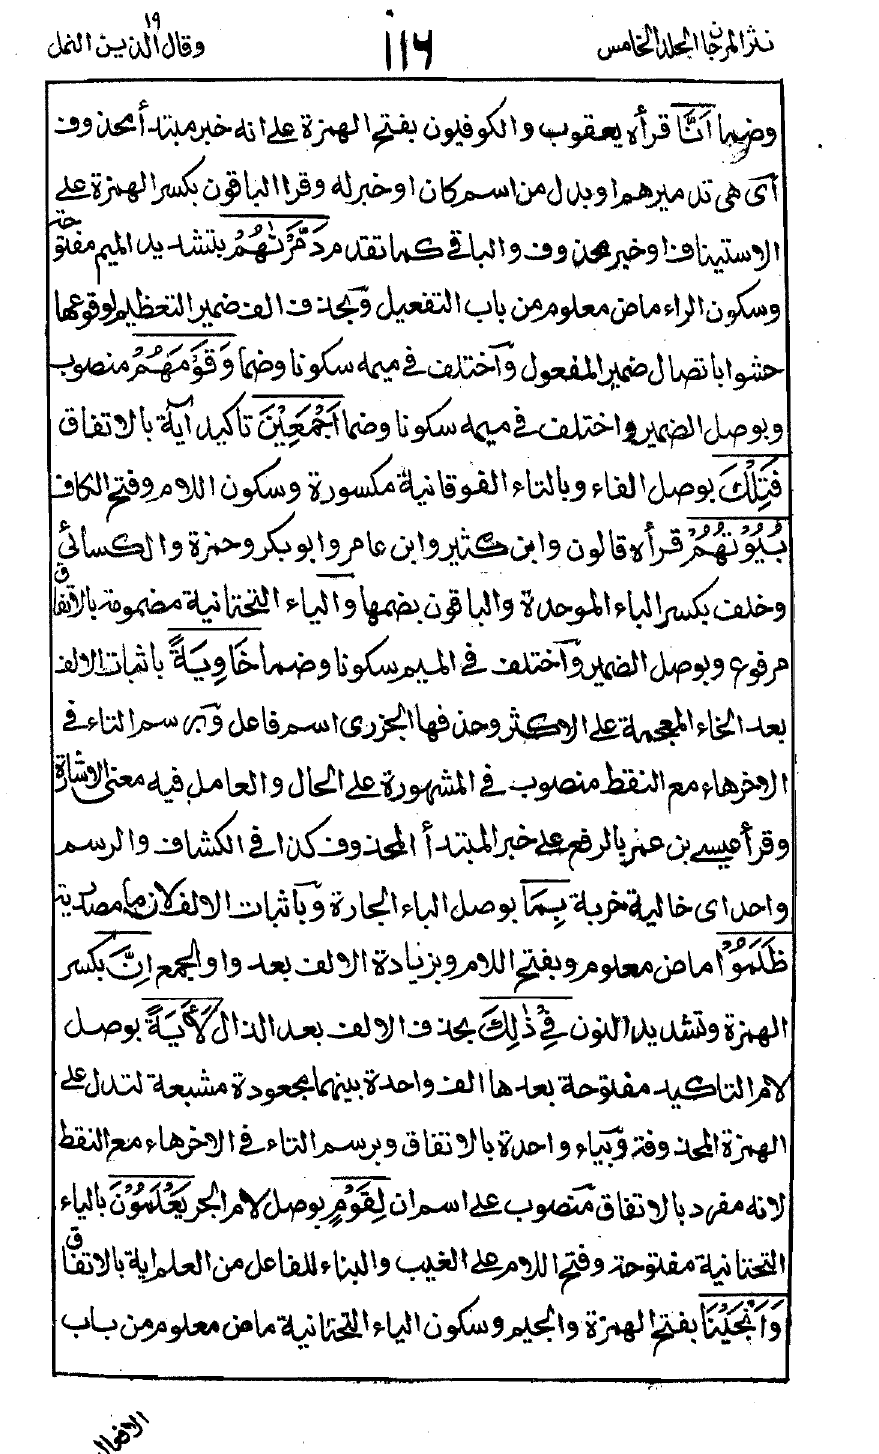 نثر المرجان المجلد الخامس
١١٦
وقال الذين ١٩ النمل
وضما اَنَّا قرأه يعقوب والكوفيون بفتح الهمزة على انه خبر مبتدأ محذوف
اى هى تدميرهم او بدل من اسم كان او خبر له وقرا الباقون بكسر الهمزة على
الاستيناف او خبر محذوف والباقى كما تقدم دَمَّرْنٰهُمْ بتشديد الميم مفتوحة
وسكون الراء ماض معلوم من باب التفعيل وبحذف الف ضمير التعظيم لوقوعها
حشوا باتصال ضمير المفعول واختلف فى ميمه سكونا وضما وَقَوْمَهُمْ منصوب
وبوصل الضمير واختلف فى ميمه سكونا وضما اَجْمَعِيْنَ تاكيد اٰية بالاتفاق
فَتِلْكَ بوصل الفاء وبالتاء الفوقانية مكسورة وسكون اللام وفتح الكاف
بُيُوْتُهُمْ قرأه قالون وابن كثير وابن عامر وابو بكر وحمزة والكسائى
وخلف بكسر الباء الموحدة والباقون بضمها والياء التحتانية مضمومة بالاتفاق
مرفوع وبوصل الضمير واختلف فى الميم سكونا وضما خَاوِيَةً باثبات الالف
بعد الخاء المعجمة على الاكثر وحذفها الجزرى اسم فاعل وبرسم التاء فى
الاخرهاء مع النقط منصوب فى المشهورة على الحال والعامل فيه معنى الاشارة
وقرأ عيسى بن عمر بالرفع على خبر المبتدأ المحذوف كذا فى الكشاف والرسم
واحد اى خالية خربة بِمَا بوصل الباء الجارة وباثبات الالف لان ما مصدرية
ظَلَمُوْا ماض معلوم وبفتح اللام وبزيادة الالف بعد واو الجمع اِنَّ بكسر
الهمزة وتشديد النون فِىْ ذٰلِكَ بحذف الالف بعد الذال لَاٰيَةً بوصل
لام التاكيد مفتوحة بعدها الف واحدة بينهما مجعودة مشبعة لتدل على
الهمزة المحذوفة وبياء واحدة بالاتفاق وبرسم التاء فى الاخرهاء مع النقط
لانه مفرد بالاتفاق منصوب على اسم ان لِقَوْمٍ بوصل لام الجر يَعْلَمُوْنَ بالياء
التحتانية مفتوحة وفتح اللام على الغيب والبناء للفاعل من العلم اية بالاتفاق
وَاَنْجَيْنَا بفتح الهمزة والجيم وسكون الياء التحتانية ماض معلوم من باب
الافعال